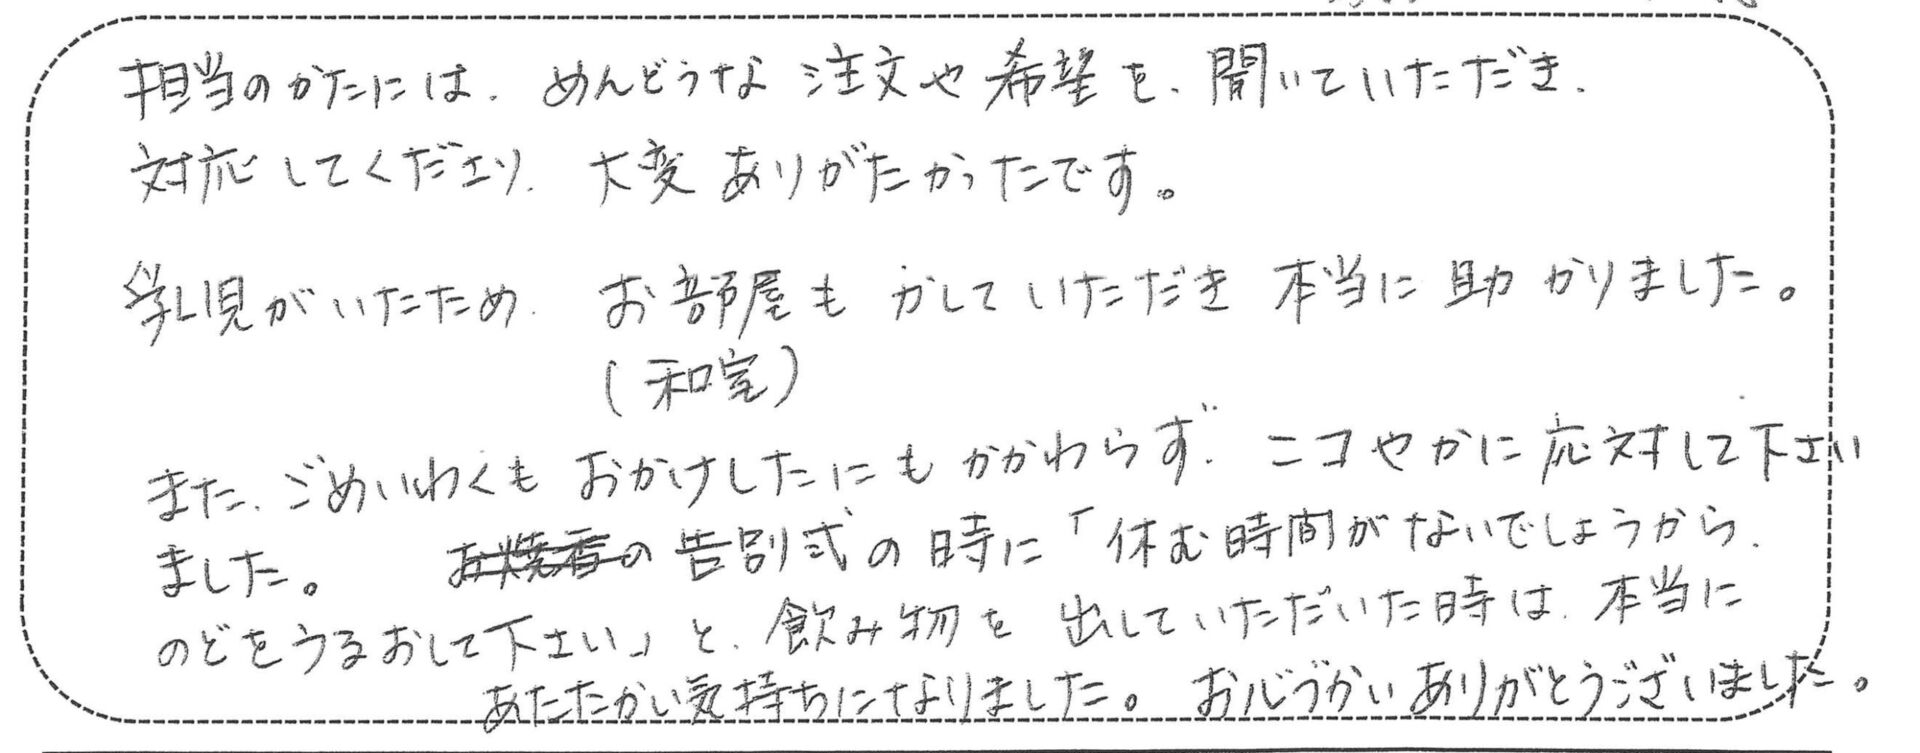 担当のかたには、めんどうな注文や希望を、聞いていただき、
対応してくださり、大変ありがたかったです。
乳児がいたため、お部屋もかしていただき本当に助かりました。
(和室)
また、ごめいわくもおかけしたにもかかわらず、ニコやかに応対して下さい
ました。お焼香の告別式の時に「休む時間がないでしょうから、
のどをうるおして下さい」と、飲み物を出していただいた時は、本当に
あたたかい気持ちになりました。お心づかいありがとうございました。